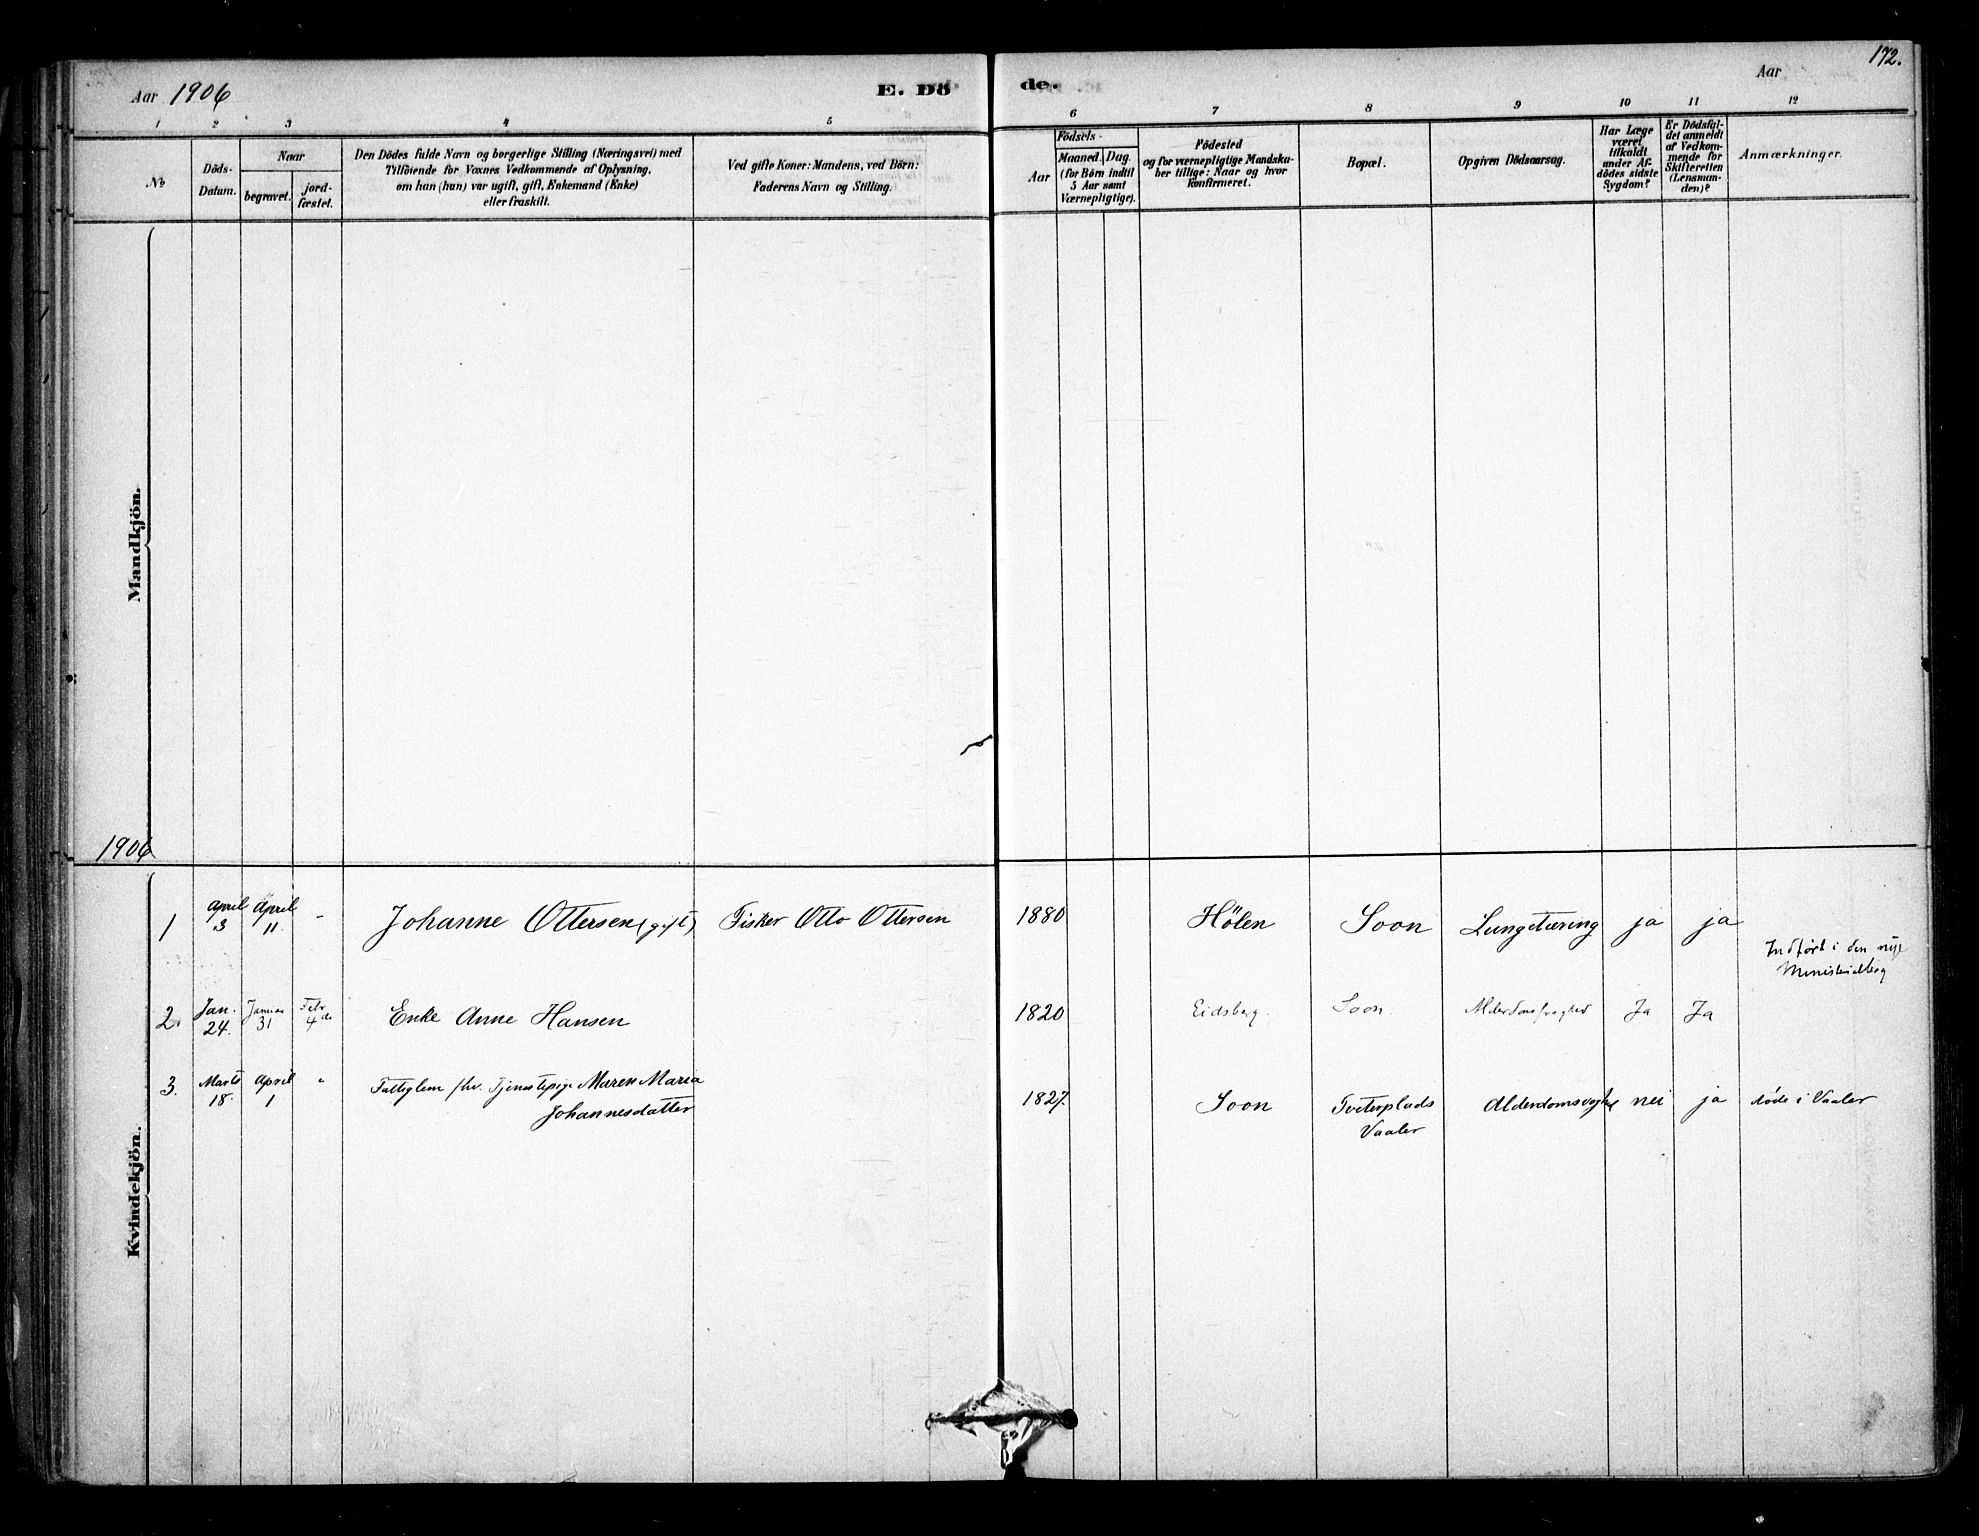 172.
Aar 1906 E. Dö de. Aar
1 2 3 4 5 6 7 8 9 10 11 12
No
Döds-
Datum.
Naar
begravet.
jord-
fæstet.
Den Dödes fulde Navn og borgerlige Stilling (Næringsvei) med
Tilföiende for Voxnes Vedkommende af Oplysning,
om han (hun) var ugift, gift, Enkemand (Enke)
eller fraskilt.
Ved gifte Koner: Mandens, ved Börn:
Faderens Navn og Stilling.
Födsels-
Aar
Maaned. Dag.
(for Börn indtil
5 Aar samt
Værnepligtige).
Födested
og for værnepligtige Mandska-
ber tillige: Naar og hvor
konfirmeret.
Bopæl.
Opgiven Dödsaarsag.
Har Læge
været
tilkaldt
under Af-
dödes sidste
Sygdom?
Er Dödsfal-
det anmeldt
af Vedkom-
mende for
Skifteretten
(Lensman-
den)?
Anmærkninger.
Mandkjön.
1906
Kvindekjön.
1 April 3 April 11. - Johanne Ottersen (gift) Fisker Otto Ottersen 1880 Hölen Soon Lungetæring ja ja
Indført i den nye
Ministerialbog
2. Jan. 24. Januar 31 Febr 4de Enke Anne Hansen 1820 Eidsberg. Soon. Alderdomssvaghed Ja Ja
3. Marts 18. April 1 " Fattiglem fhv. Tjenestepige Maren Maria
Johannesdatter
1827. Soon Tveterplads
Vaaler
Alderdomsvaghed nei ja døde i Vaaler